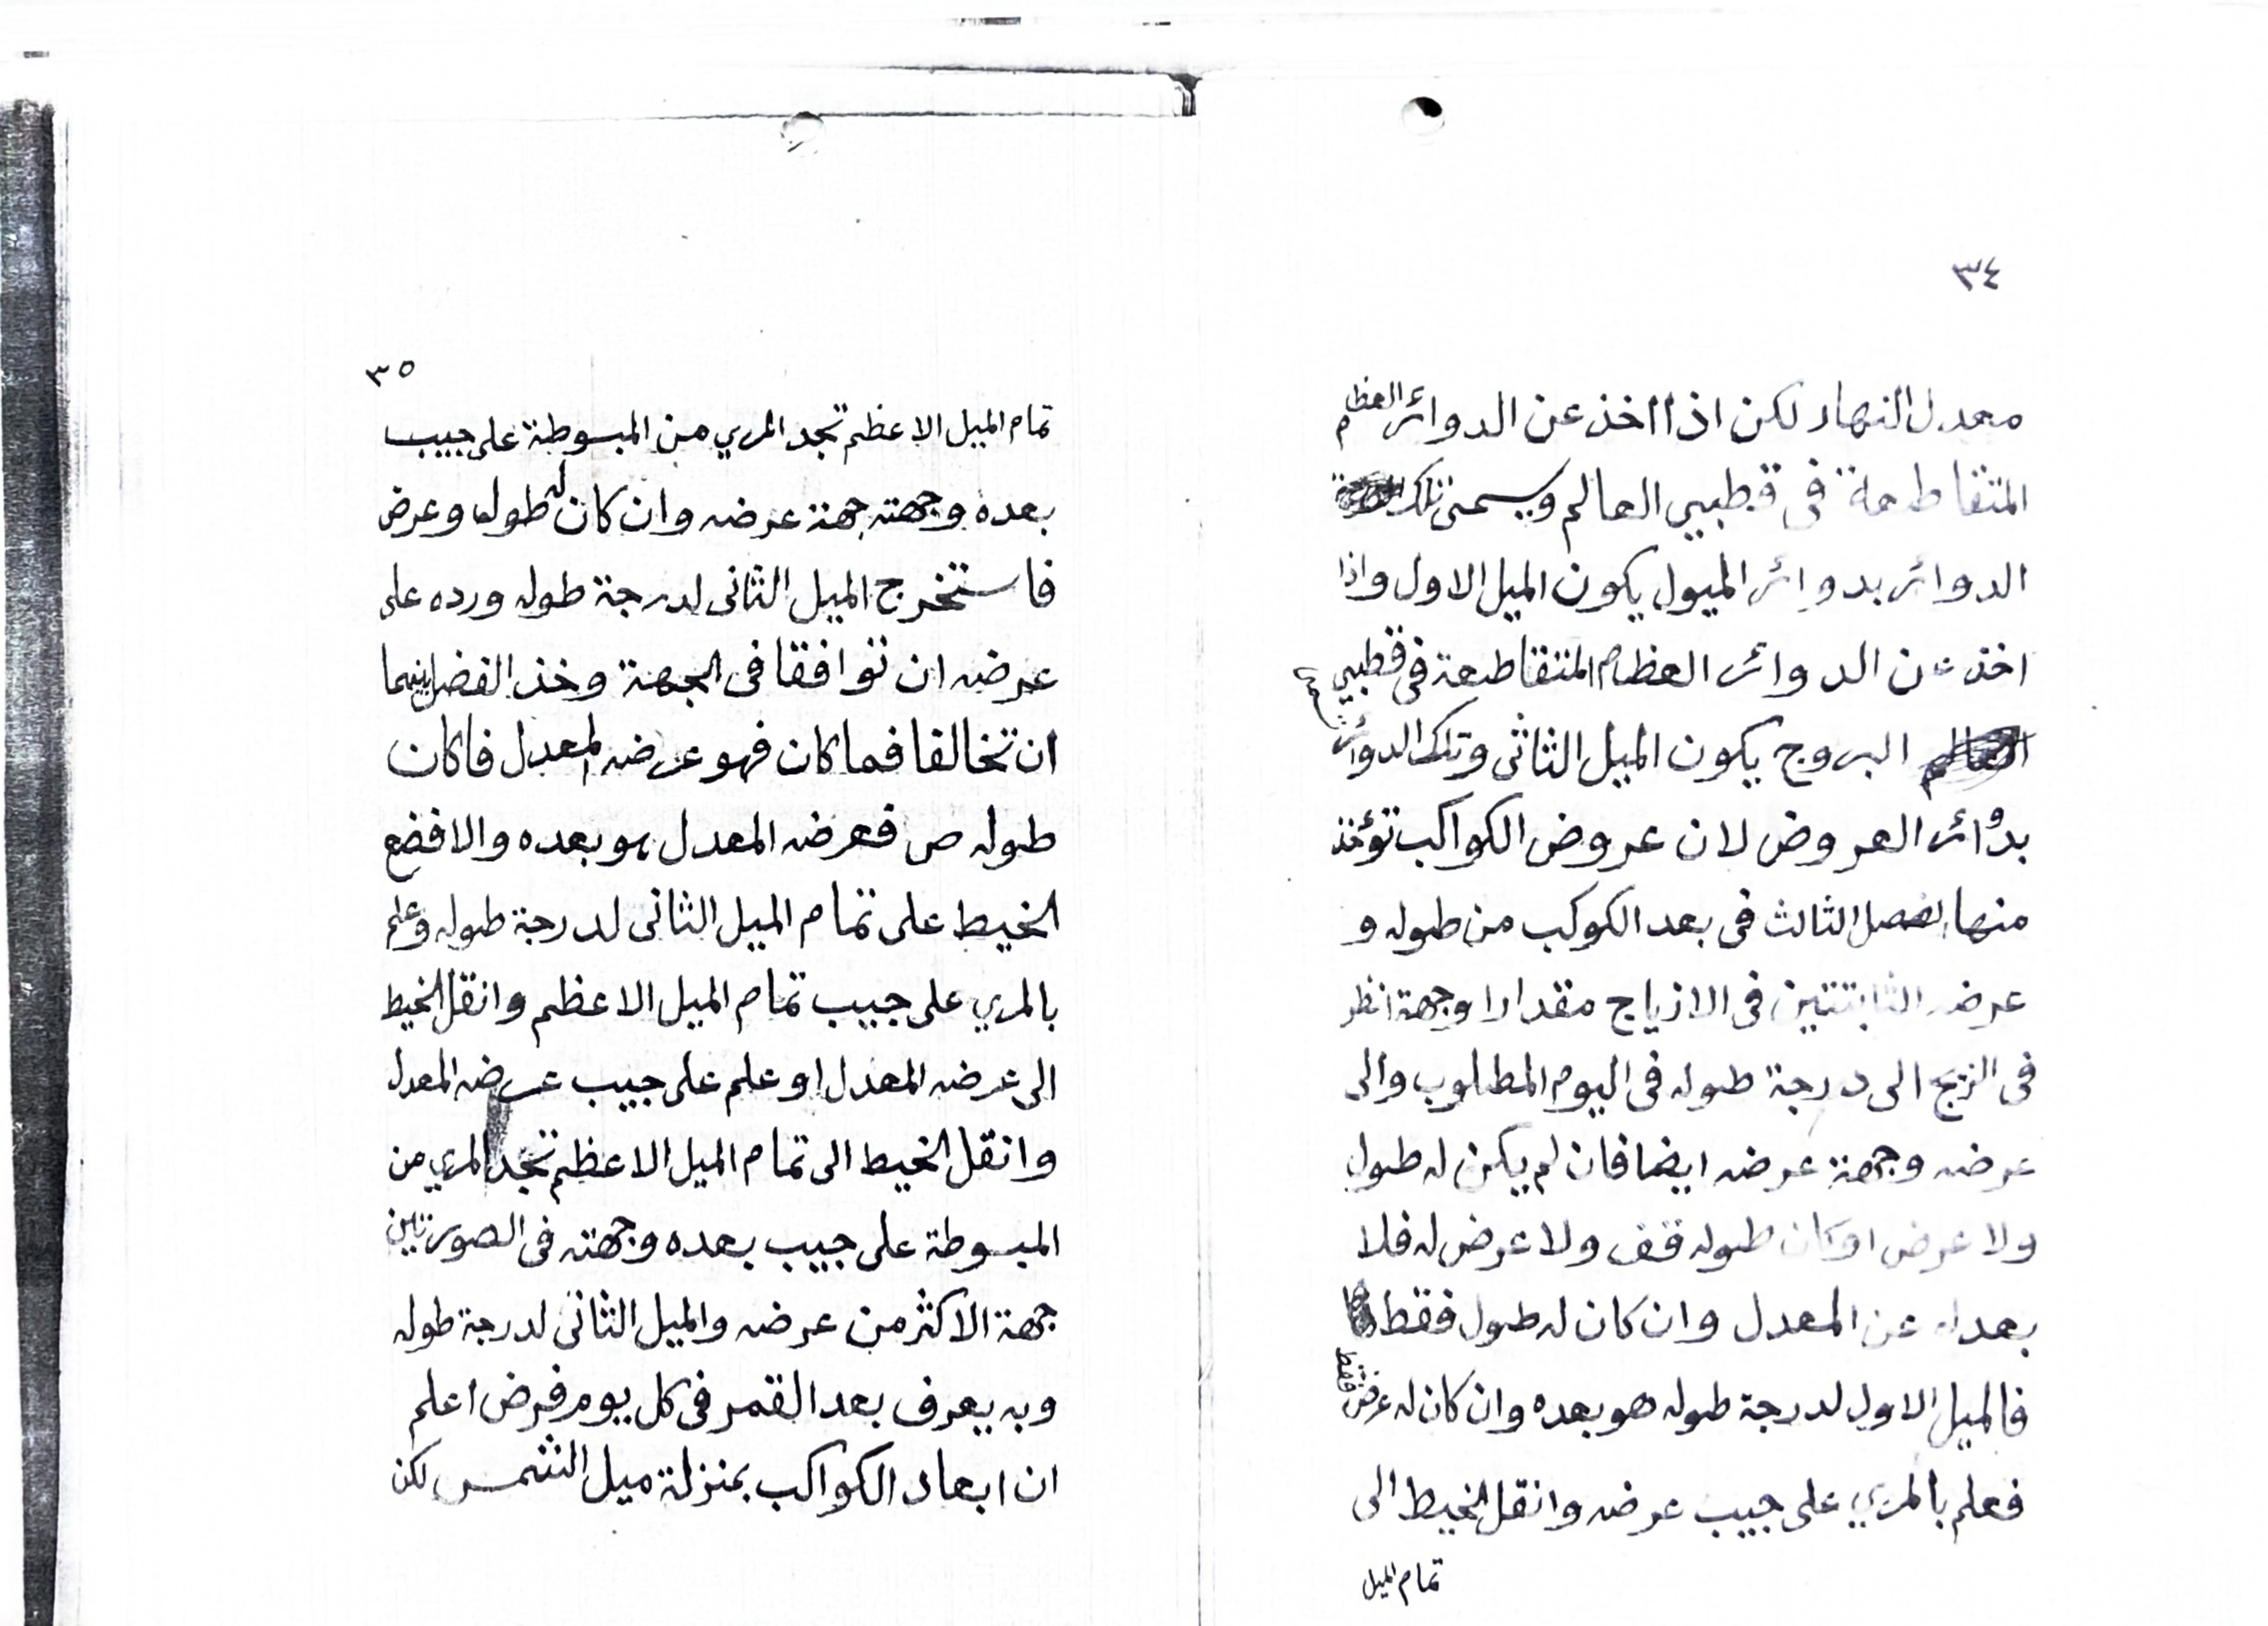 ٣٤
معدل النهار لكن اذا اخذ عن الدوائر العظام
المتقاطعة فى قطبيى العالم ويسمى تلك
الدوائر بدوائر الميول يكون الميل الاول واذا
اخذ عن الدوائر العظام المتقاطعة فى قطبيى
البروج يكون الميل الثانى وتلك الدوائر تسمى
بدوائر العروض لان عروض الكواكب تؤخذ
منها الفصل الثالث فى بعد الكوكب من طوله و
عرضه الثابتتين فى الازياج مقدارا وجهة انظر
فى الزيج الى درجة طوله فى اليوم المطلوب والى
عرضه وجهة عرضه ايضا فان لم يكن له طول
ولا عرض اوكان طوله قف ولا عرض له فلا
بعد له عن المعدل وان كان له طول فقط
فالميل الاول لدرجة طوله هو بعده وان كان له عرض فقط
فعلم بالمري على جيب عرضه وانقل الخيط الى
تمام الميل
٣٥
تمام الميل الاعظم تجد المري من المبسوطة على جيب
بعده وجهته جهة عرضه وان كان له طول وعرض
فاستخرج الميل الثانى لدرجة طوله ورده على
عرضه ان توافقا فى الجهة وخذ الفضل بينهما
ان تخالفا فما كان فهو عرضه المعدل فاكان
طوله ص فعرضه المعدل هو بعده والا فضع
الخيط على تمام الميل الثانى لدرجة طوله وعلم
بالمري على جيب تمام الميل الاعظم وانقل الخيط
الى عرضه المعدل او علم على جيب عرضه المعدل
وانقل الخيط الى تمام الميل الاعظم تجد المري من
المبسوطة على جيب بعده وجهته فى الصورتين
جهة الاكثر من عرضه والميل الثانى لدرجة طوله
وبه يعرف بعد القمر فى كل يوم فرض اعلم
ان ابعاد الكواكب بمنزلة ميل الشمس لكن